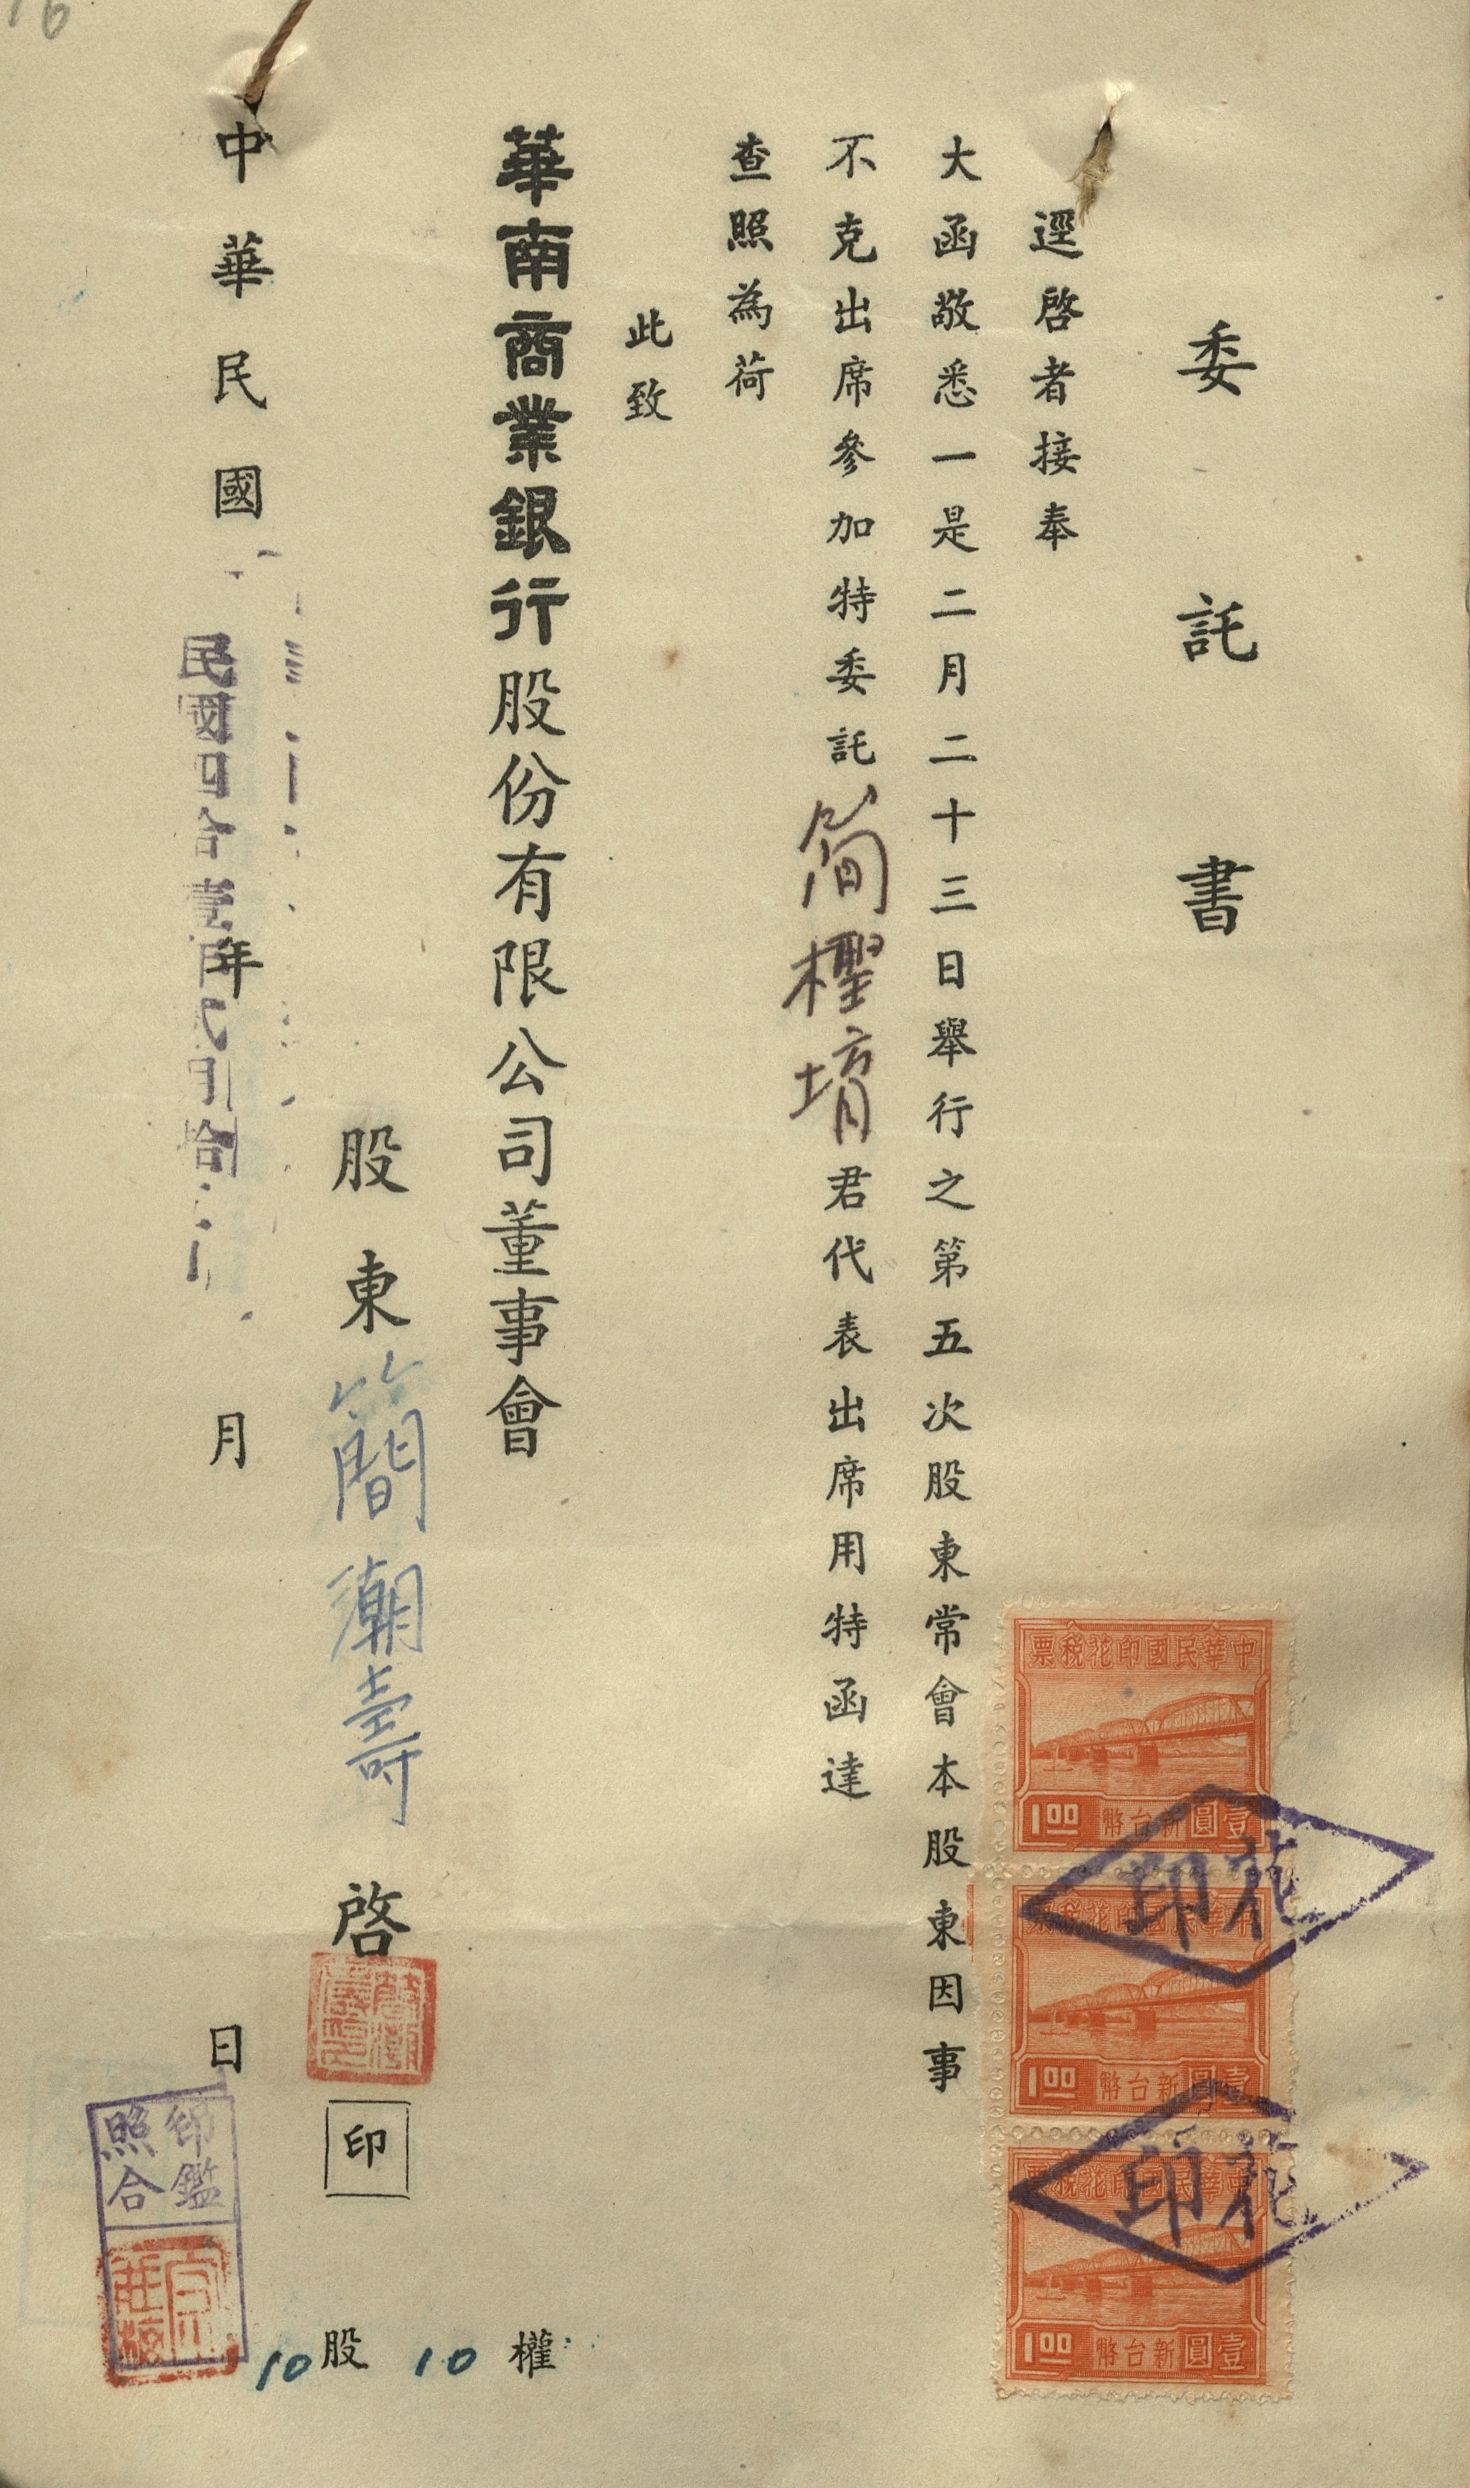 委託書
逕啓者接奉
大函敬悉一是二月二十三日舉行之第五次股東常會本股東因事
不克出席參加特委託简檉堉君代表出席用特函達
查照為荷
此致
華南商業銀行股份有限公司董事會
股東簡潮壽啓
印
10股 10權
中華民國 年 月 日
民國四合壹年弍月拾
印鑑
照合
中華民國印花税票
壹圓新台幣
1.00
中華民國印花税票
壹圓新台幣
1.00
中華民國印花税票
壹圓新台幣
1.00
花印
花印
16